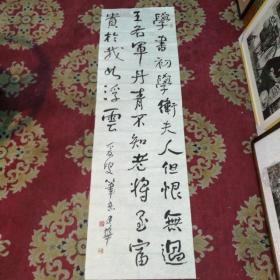 學書初學衛夫人但恨無過
王右軍丹青不知老將至富
貴於我如浮雲